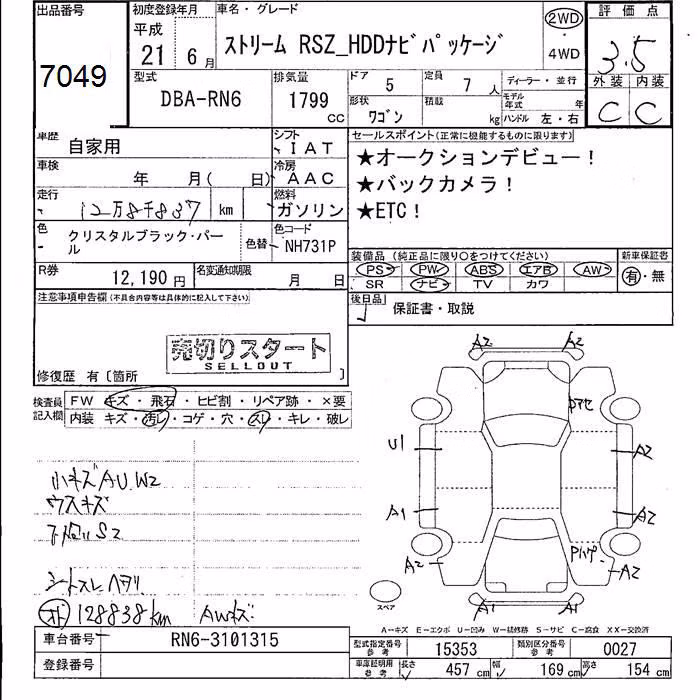 出品番号
7049
初度登録年月
平成
21 6 月
車名・グレード
ストリーム RSZ_HDDナビパッケージ
2WD
・
4WD
評価点
3.5
外装 内装
C C
型式
DBA-RN6
排気量
1799
CC
ドア 5
定員 7 人
形状 ワゴン
積載 kg
ディーラー・並行
モデル年式 年
ハンドル 左・右
車歴
自家用
シフト
IAT
車検
年 月( 日)
冷房
AAC
走行
12万8千837 km
燃料
ガソリン
色
クリスタルブラック・パール
色替
色コード
NH731P
R券 12,190 円
名変通知期限 月 日
セールスポイント(正常に機能するものに限ります)
★オークションデビュー！
★バックカメラ！
★ETC！
装備品 (純正品に限り○をつけてください)
PS PW ABS エアB AW
SR ナビ TV カワ
新車保証書
有・無
後日品
保証書・取説
注意事項申告欄(不具合内容等は具体的に記入して下さい)
売切りスタート
SELLOUT
修復歴 有〔箇所 〕
検査員記入欄
FW キズ・飛石・ヒビ割・リペア跡・×要
内装 キズ・汚レ・コゲ・穴・スレ・キレ・破レ
小キズAU.W2
ウスキズ
下廻りS2
シートスレ ヘタリ
128838km AWキズ
A2 A2
U1 A2
A1 A2
A2 A2
A1 A1
スペア
A－キズ E－エクボ U－凹み W－補修跡 S－サビ C－腐食 XX－交換済
車台番号 RN6-3101315
登録番号
型式指定番号 参考 15353
類別区分番号 参考 0027
車庫証明用 参考 長さ 457 cm 幅 169 cm 高さ 154 cm